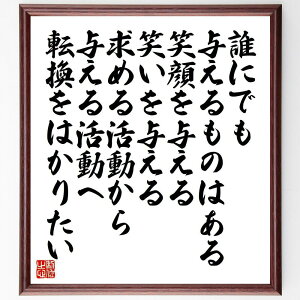 誰にでも
与えるものはある
笑顔を与える
笑いを与える
求める活動から
与える活動へ
転換をはかりたい